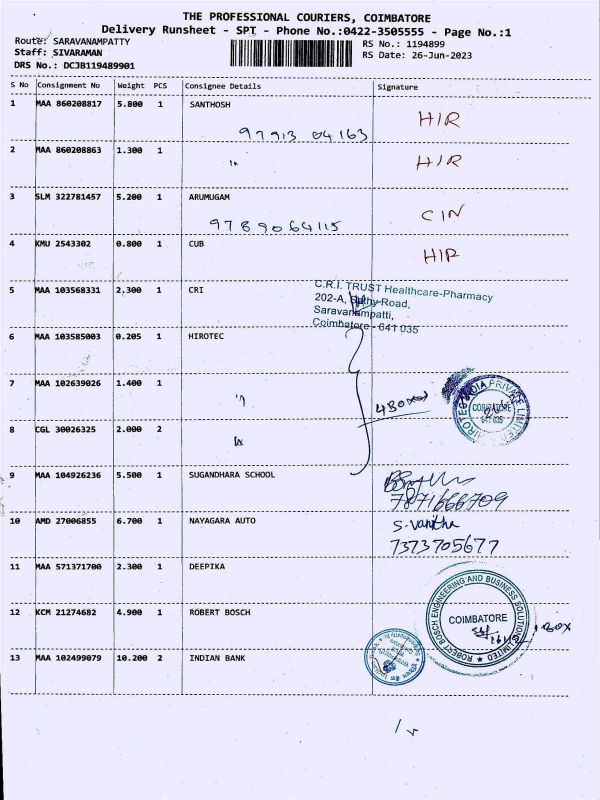 THE PROFESSIONAL COURIERS, COIMBATORE
Delivery Runsheet - SPT - Phone No.:0422-3505555 - Page No.:1
Route: SARAVANAMPATTY
RS No.: 1194899
Staff: SIVARAMAN
RS Date: 26-Jun-2023
DRS No.: DCJB119489901
S No Consignment No Weight PCS Consignee Details Signature
1 MAA 860208817 5.800 1 SANTHOSH
97913 04163
HIR
2 MAA 860208863 1.300 1
HIR
3 SLM 322781457 5.200 1 ARUMUGAM
9789064115
CIN
4 KMU 2543302 0.800 1 CUB
HIR
5 MAA 103568331 2.300 1 CRI
C.R.I. TRUST Healthcare-Pharmacy
202-A, Sathy Road,
Saravanampatti,
Coimbatore - 641 035
6 MAA 103585003 0.205 1 HIROTEC
7 MAA 102639026 1.400 1
4 BOX
HIROTEC INDIA PRIVATE LIMITED
COIMBATORE
641 035
8 CGL 30026325 2.000 2
9 MAA 104926236 5.500 1 SUGANDHARA SCHOOL
7871666709
10 AMD 27006855 6.700 1 NAYAGARA AUTO
S. Vanitha
7373705677
11 MAA 571371700 2.300 1 DEEPIKA
12 KCM 21274682 4.900 1 ROBERT BOSCH
ROBERT BOSCH ENGINEERING AND BUSINESS SOLUTIONS LIMITED
COIMBATORE
1 BOX
13 MAA 102499079 10.200 2 INDIAN BANK